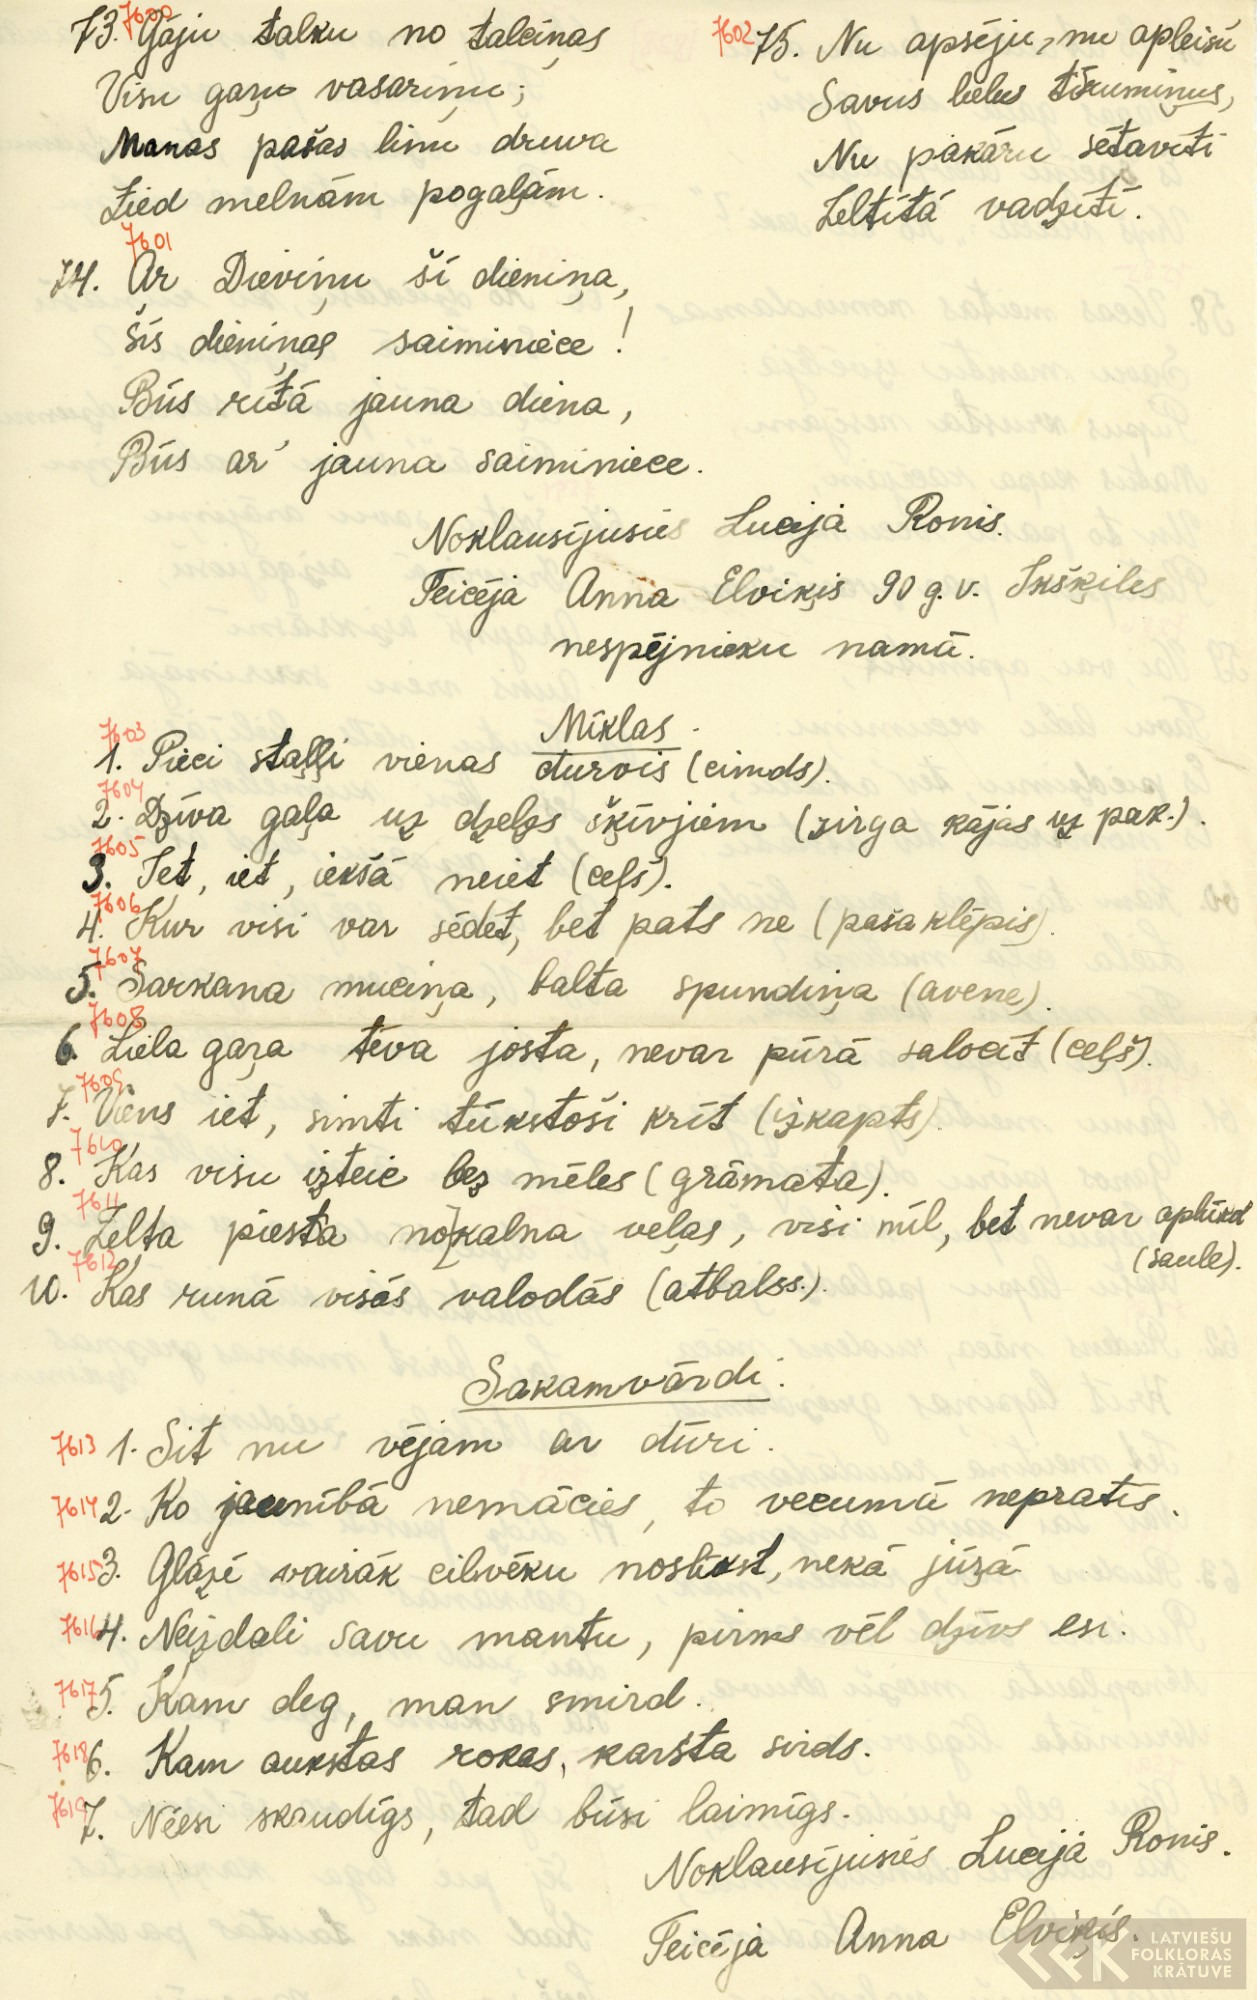 7600
73. Gāju talku no talciņas
Visu gaŗu vasariņu;
Manas pašas linu druva
Zied melnām pogaļām.
7601
74. Ar Dieviņu šī dieniņa,
Šīs dieniņas saiminiece!
Būs rītā jauna diena,
Būs ar' jauna saiminiece.
7602
75. Nu apsēju, nu apleisu
Savus lielus tīrumiņus,
Nu pakāru sētavīti
Zeltītā vadzītī.
Noklausījusies Lucija Ronis.
Teicēja Anna Elviķis 90 g.v. Ikšķiles
nespējnieku namā.
Mīklas
7603
1. Pieci staļļi vienas durvis (cimds).
7604
2. Dzīva gaļa uz dzelzs šķīvjiem (zirga kājas uz pak.).
7605
3. Iet, iet, iekšā neiet (ceļš).
7606
4. Kur visi var sēdēt, bet pats ne (paša klēpis).
7607
5. Sarkana muciņa, balta spundiņa (avene).
7608
6. Liela gaŗa tēva josta, nevar pūrā salocīt (ceļš).
7609
7. Viens iet, simti tūkstoši krīt (izkapts).
7610
8. Kas visu izteic bez mēles (grāmata).
7611
9. Zelta piesta no kalna veļas, visi mīl, bet nevar aplūkot
(saule).
7612
10. Kas runā visās valodās (atbalss.).
Sakamvārdi.
7613 1. Sit nu vējam ar dūri.
7614 2. Ko jaunībā nemācies, to vecumā nepratīs.
7615 3. Glāzē vairāk cilvēku noslīkst, nekā jūŗā
7616 4. Neizdali savu mantu, pirms vēl dzīvs esi.
7617 5. Kam deg, man smird.
7618 6. Kam aukstas rokas, karsta sirds.
7619 7. Neesi skaudīgs, tad būsi laimīgs.
Noklausījusies Lucija Ronis.
Teicēja Anna Elviķis.
LATVIEŠU
FOLKLORAS
KRĀTUVE